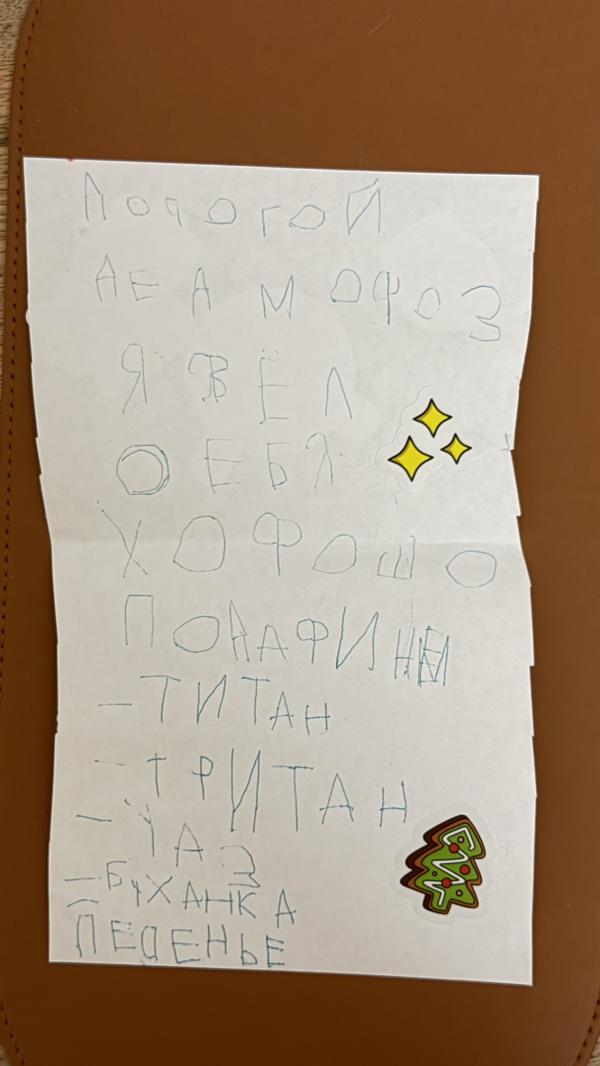 ДОРОГОЙ
ДЕД МОФОЗ
Я ВЁЛ
ОЕБЯ
ХОФОШО
ПОДАФИ МНЕ
- ТИТАН
- ТРИТАН
- УАЗ
- БУХАНКА
- ПЕЧЕНЬЕ